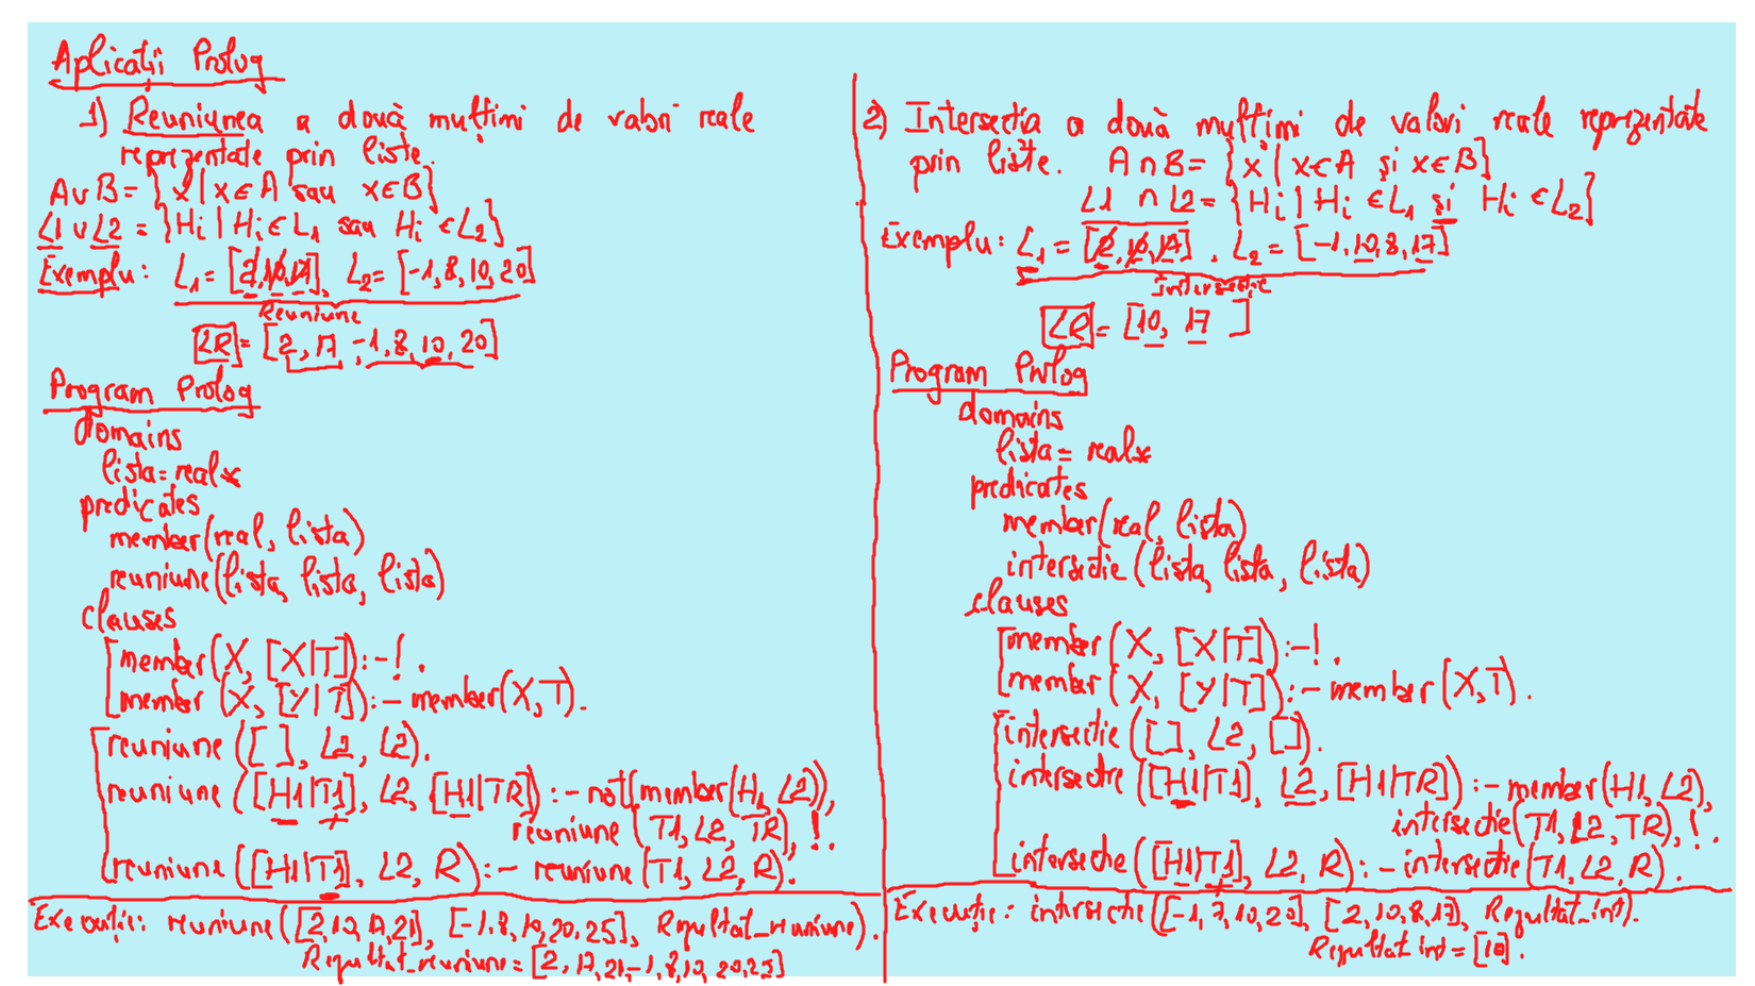 Aplicații Prolog
1) Reuniunea a două mulțimi de valori reale
reprezentate prin liste.
A∪B = {x | x∈A sau x∈B}
L1∪L2 = {Hi | Hi∈L1 sau Hi∈L2}
Exemplu: L1 = [2,10,17], L2 = [-1,8,10,20]
Reuniune
LR = [2, 17, -1, 8, 10, 20]
Program Prolog
domains
lista = real*
predicates
member(real, lista)
reuniune(lista, lista, lista)
clauses
member(X, [X|T]):-!.
member (X, [Y|T]):- member(X,T).
reuniune ([ ], L2, L2).
reuniune ([H1|T1], L2, [H1|TR]) :- not(member(H1, L2)),
reuniune (T1, L2, TR), !.
reuniune ([H1|T1], L2, R) :- reuniune (T1, L2, R).
Execuție: reuniune([2,10,17,21], [-1,8,10,20,25], Rezultat_reuniune).
Rezultat_reuniune = [2,17,21,-1,8,10,20,25]
2) Intersectia a două mulțimi de valori reale reprezentate
prin liste. A∩B = {x | x∈A și x∈B}
L1 ∩ L2 = {Hi | Hi ∈L1 și Hi ∈L2}
Exemplu: L1 = [2,10,17], L2 = [-1,10,8,17]
Intersectie
LR = [10, 17 ]
Program Prolog
domains
lista = real*
predicates
member(real, lista)
intersectie (lista, lista, lista)
clauses
member (X, [X|T]) :-!.
member (X, [Y|T]) :- member (X,T).
intersectie ([], L2, []).
intersectie ([H1|T1], L2, [H1|TR]) :- member(H1, L2),
intersectie(T1, L2, TR), !.
intersectie ([H1|T1], L2, R) :- intersectie (T1, L2, R).
Execuție: intersectie([-1,7,10,20], [2,10,8,17], Rezultat_int).
Rezultat int = [10].